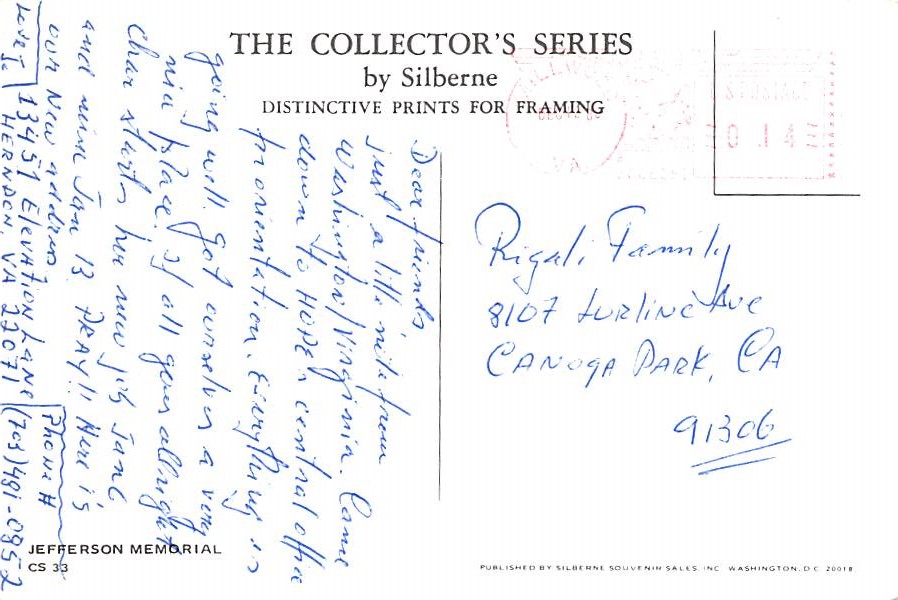 THE COLLECTOR'S SERIES
by Silberne
DISTINCTIVE PRINTS FOR FRAMING
VA
Dear friends
just a little note from
Washington/Virginia. Came
down to HOPE's central office
for orientation. Everything is
going well. Got ourselves a very
nice place. If all goes allright
Char starts her new job Jan 2
and mine Jan 13 PRAY!! Here is
our New address
13451 ELEVATION LANE
HERNDON, VA 22071
PHONE #
(703) 481-0852
Love,
Rigali Family
8107 Lurline Ave
CANOGA PARK, CA
91306
JEFFERSON MEMORIAL
CS 33
PUBLISHED BY SILBERNE SOUVENIR SALES, INC. WASHINGTON, D.C. 20018